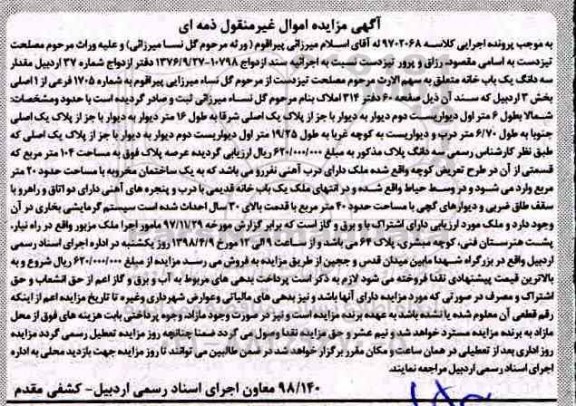 آگهی مزایده اموال غیرمنقول ذمه ای
به موجب پرونده اجرایی کلاسه ۹۷۰۲۰۶۸ له آقای اسلام میرزائی پیراقوم (ورثه مرحوم گل نسا میرزائی) و علیه وراث مرحوم مصلحت
تیزدست به اسامی مقصود، رزاق و پرور تیزدست نسبت به اجرائیه سند ازدواج ۱۰۷۹۸-۱۳۷۶/۹/۲۷ دفتر ازدواج شماره ۳۷ اردبیل مقدار
سه دانگ یک باب خانه متعلق به سهم الارث مرحوم مصلحت تیزدست از مرحوم گل نساء میرزایی پیراقوم به شماره ۱۷۰۵ فرعی از ۱ اصلی
بخش ۳ اردبیل که سند آن ذیل صفحه ۶۰ دفتر ۳۱۴ املاک بنام مرحوم گل نساء میرزائی ثبت و صادر گردیده است با حدود ومشخصات:
شمالا بطول ۶ متر اول دیواریست دوم دیوار به دیوار با جز از پلاک یک اصلی شرقا به طول ۱۶ متر دیوار به دیوار با جز از پلاک یک اصلی
جنوبا به طول ۶/۷۰ متر درب و دیواریست به کوچه غربا به طول ۱۹/۲۵ متر اول دیواریست دوم دیوار به دیوار با جز از پلاک یک اصلی که
طبق نظر کارشناس رسمی سه دانگ پلاک مذکور به مبلغ ۶۲۰/۰۰۰/۰۰۰ ریال ارزیابی گردیده عرصه پلاک فوق به مساحت ۱۰۴ متر مربع که
قسمتی از آن در طرح تعریض کوچه واقع شده ملک دارای درب آهنی نفررو می باشد که به یک ساختمان مخروبه با مساحت حدود ۲۰ متر
مربع وارد می شود و در وسط حیاط واقع شده و در انتهای ملک یک باب خانه قدیمی با درب و پنجره های آهنی دارای دو اتاق و راهرو با
سقف طاق ضربی و دیوارهای گچی با مساحت حدود ۴۰ متر مربع با قدمت بالای ۳۰ سال احداث شده است سیستم گرمایشی بخاری در آن
وجود دارد و ملک مورد ارزیابی دارای اشتراک با و برق و گاز است که برابر گزارش مورخه ۹۷/۱۱/۲۹ مامور اجرا ملک مزبور واقع در راه نیار،
پشت هنرستان فنی، کوچه مبشری، پلاک ۶۴ می باشد و از ساعت ۹ الی ۱۲ مورخ ۱۳۹۸/۴/۹ روز یکشنبه در اداره اجرای اسناد رسمی
اردبیل واقع در بزرگراه شهدا مابین میدان قدس و ججین از طریق مزایده به فروش می رسد مزایده از مبلغ ۶۲۰/۰۰۰/۰۰۰ ریال شروع و به
بالاترین قیمت پیشنهادی نقدا فروخته می شود لازم به ذکر است پرداخت بدهی های مربوط به آب و برق و گاز اعم از حق انشعاب و حق
اشتراک و مصرف در صورتی که مورد مزایده دارای آنها باشد و نیز بدهی های مالیاتی وعوارض شهرداری وغیره تا تاریخ مزایده اعم از اینکه
رقم قطعی آن معلوم شده یا نشده باشد به عهده برنده مزایده است و نیز در صورت وجود مازاد، وجوه پرداختی بابت هزینه های فوق از محل
مازاد به برنده مزایده مسترد خواهد شد و نیم عشر و حق مزایده نقدا وصول می گردد ضمنا چنانچه روز مزایده تعطیل رسمی گردد مزایده
روز اداری بعد از تعطیلی در همان ساعت و مکان مقرر برگزار خواهد شد در ضمن طالبین می توانند تا روز مزایده جهت بازدید محلی به اداره
اجرای اسناد رسمی اردبیل مراجعه نمایند.
۹۸/۱۴۰ معاون اجرای اسناد رسمی اردبیل- کشفی مقدم